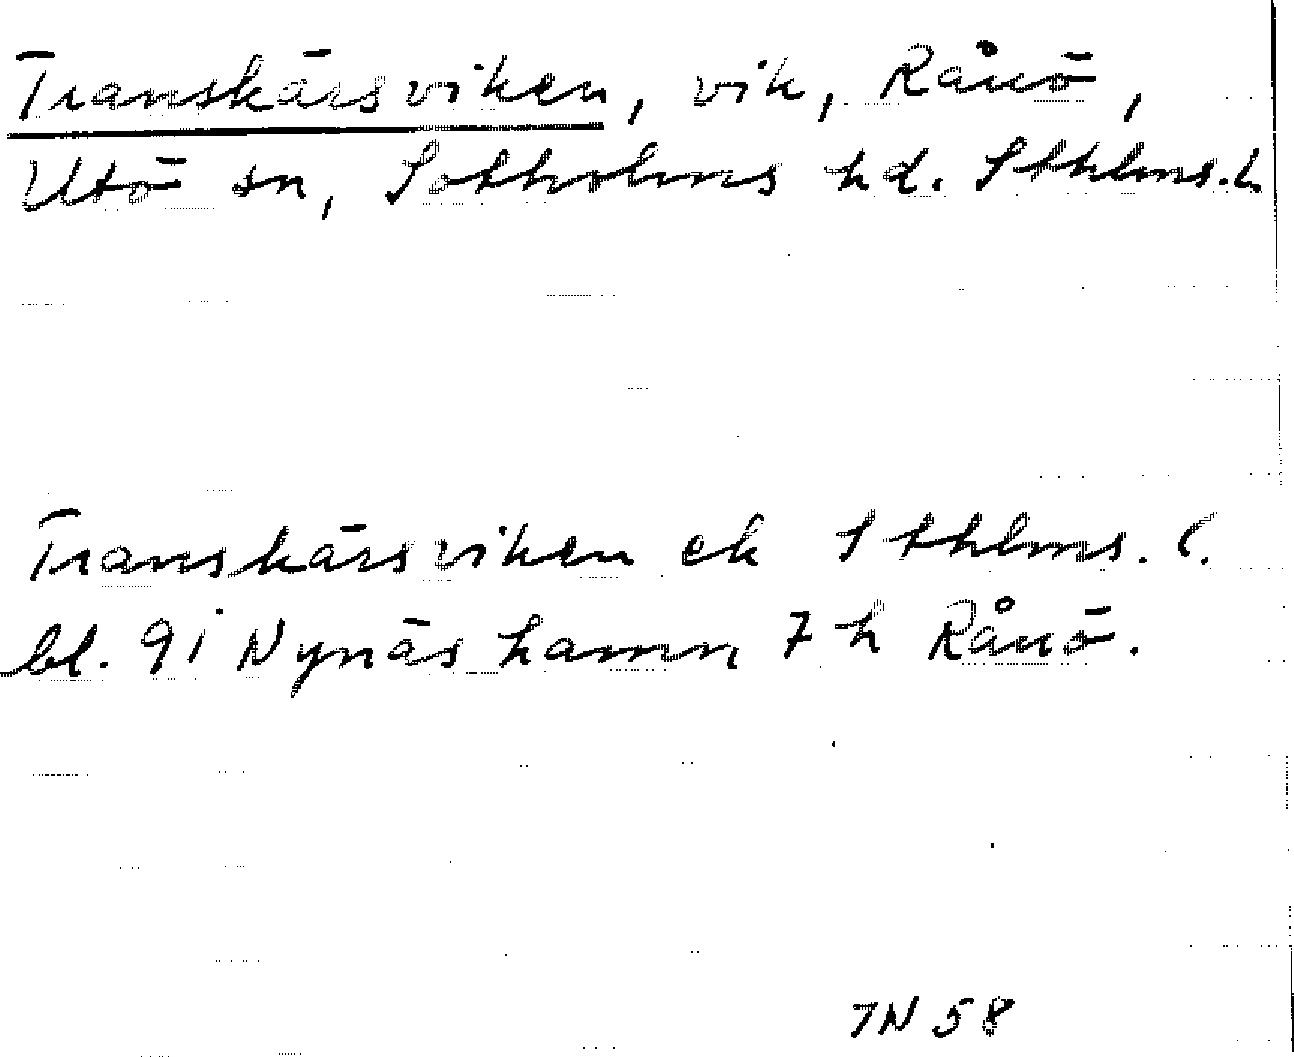 Transkärsviken, vik, Rånö,
Utö sn, Sotholms hd. Sthlms.L
Transkärsviken ek Sthlms. l.
bl. 9i Nynäshamn 7h Rånö.
IN 58